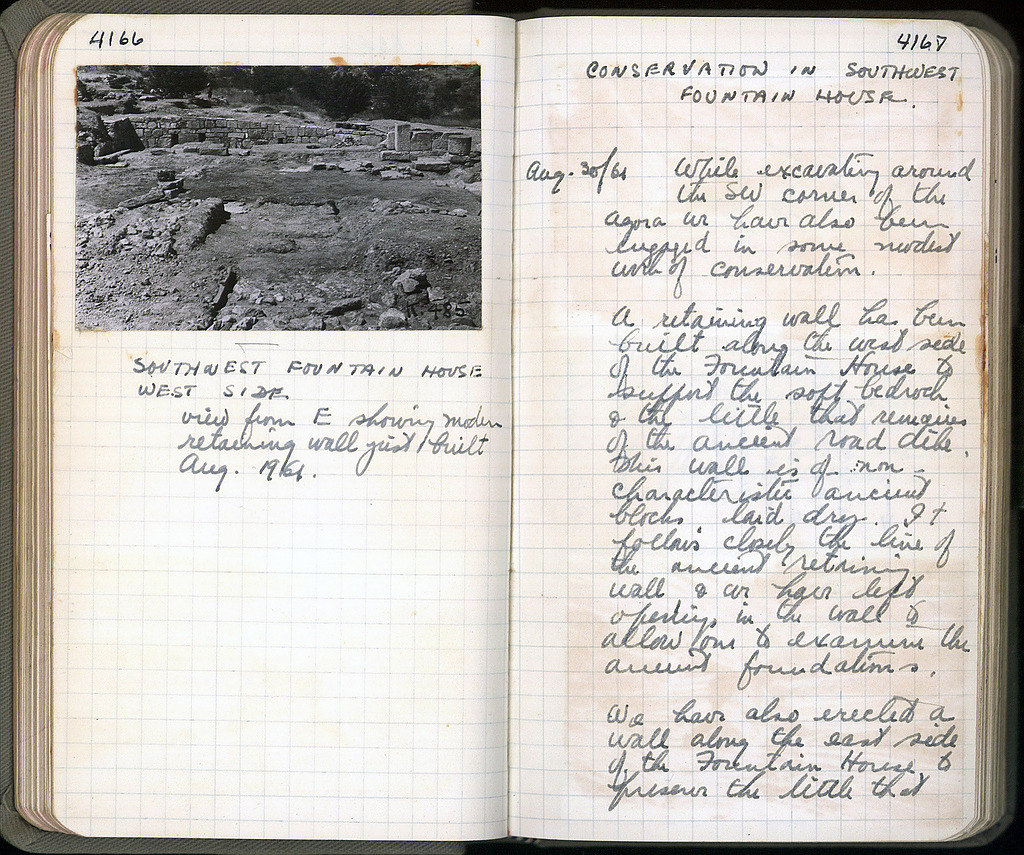 4166
П. 485
SOUTHWEST FOUNTAIN HOUSE
WEST SIDE.
view from E showing modern
retaining wall just built
Aug. 1961.
4167
CONSERVATION IN SOUTHWEST
FOUNTAIN HOUSE.
Aug. 30/61 While excavating around
the SW corner of the
agora we have also been
engaged in some modest
work of conservation.
A retaining wall has been
built along the west side
of the Fountain House to
support the soft bedrock
& the little that remains
of the ancient road
This wall is of non-
characteristic ancient
blocks laid dry. It
follows closely the line of
the ancient retaining
wall & we have left
openings in the wall to
allow one to examine the
ancient foundations.
We have also erected a
wall along the east side
of the Fountain House to
preserve the little that